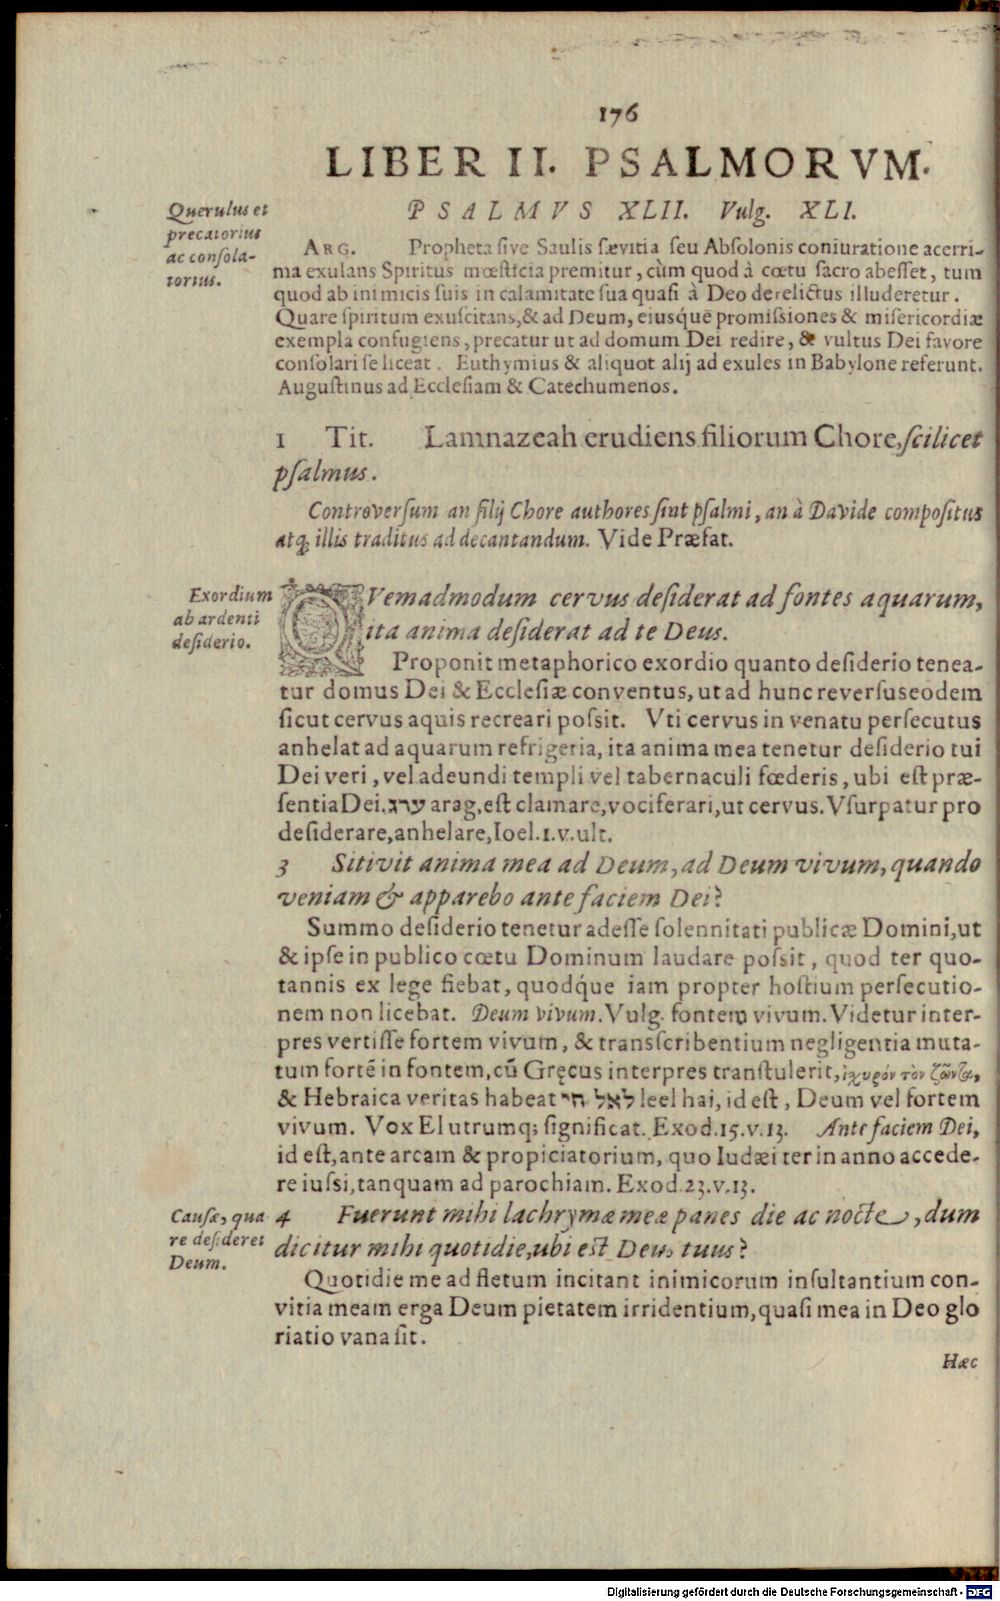 176
LIBER II. PSALMORVM.
PSALMVS XLII. Vulg. XLI.
Querulus et
precatorius
ac consola-
torius.
ARG. Propheta sive Saulis sævitia seu Absolonis coniuratione acerri-
ma exulans Spiritus mœsticia premitur, cùm quod à cœtu sacro abesset, tum
quod ab inimicis suis in calamitate sua quasi à Deo derelictus illuderetur.
Quare spiritum exuscitans, & ad Deum, eiusquè promissiones & misericordiæ
exempla confugiens, precatur ut ad domum Dei redire, & vultus Dei favore
consolari se liceat. Euthymius & aliquot alij ad exules in Babylone referunt.
Augustinus ad Ecclesiam & Catechumenos.
1 Tit. Lamnazeah erudiens filiorum Chore, scilicet
psalmus.
Controversum an filij Chore authores sint psalmi, an à Davide compositus
atq; illis traditus ad decantandum. Vide Præfat.
Exordium
ab ardenti
desiderio.
QVemadmodum cervus desiderat ad fontes aquarum,
ita anima desiderat ad te Deus.
Proponit metaphorico exordio quanto desiderio tenea-
tur domus Dei & Ecclesiæ conventus, ut ad hunc reversus eodem
sicut cervus aquis recreari possit. Vti cervus in venatu persecutus
anhelat ad aquarum refrigeria, ita anima mea tenetur desiderio tui
Dei veri, vel adeundi templi vel tabernaculi fœderis, ubi est præ-
sentia Dei. ערג arag, est clamare, vociferari, ut cervus. Vsurpatur pro
desiderare, anhelare, Ioel. 1. v. ult.
3 Sitivit anima mea ad Deum, ad Deum vivum, quando
veniam & apparebo ante faciem Dei?
Summo desiderio tenetur adesse solennitati publicæ Domini, ut
& ipse in publico cœtu Dominum laudare possit, quod ter quo-
tannis ex lege fiebat, quodq́ue iam propter hostium persecutio-
nem non licebat. Deum vivum. Vulg. fontem vivum. Videtur inter-
pres vertisse fortem vivum, & transcribentium negligentia muta-
tum fortè in fontem, cũ Gręcus interpres transtulerit, ἰσχυρόν τὸν ζῶντα,
& Hebraica veritas habeat לאל חי leel hai, id est, Deum vel fortem
vivum. Vox El utrumq; significat. Exod. 15. v. 13. Ante faciem Dei,
id est, ante arcam & propiciatorium, quo Iudæi ter in anno accede-
re iussi, tanquam ad parochiam. Exod. 23. v. 13.
Causæ, qua
re desideret
Deum.
4 Fuerunt mihi lachrymæ meæ panes die ac nocte, dum
dicitur mihi quotidie, ubi est Deus tuus?
Quotidie me ad fletum incitant inimicorum insultantium con-
vitia meam erga Deum pietatem irridentium, quasi mea in Deo glo
riatio vana sit.
Hæc
Digitalisierung gefördert durch die Deutsche Forschungsgemeinschaft - DFG